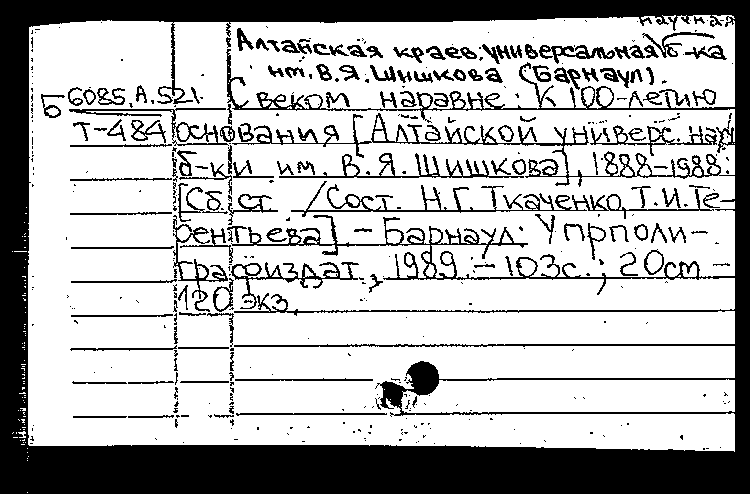 научная
Алтайская краев. универсальная б-ка
им. В.Я. Шишкова (Барнаул).
Б 6085.А.521. С веком наравне: К 100-летию
Т-484 основания [Алтайской универс. науч
б-ки им. В.Я. Шишкова], 1888-1988:
[Сб. ст. /Сост. Н.Г. Ткаченко, Т.И. Те-
рентьева] - Барнаул: Упрполи-
графиздат, 1989. - 103с.; 20см -
120 экз.